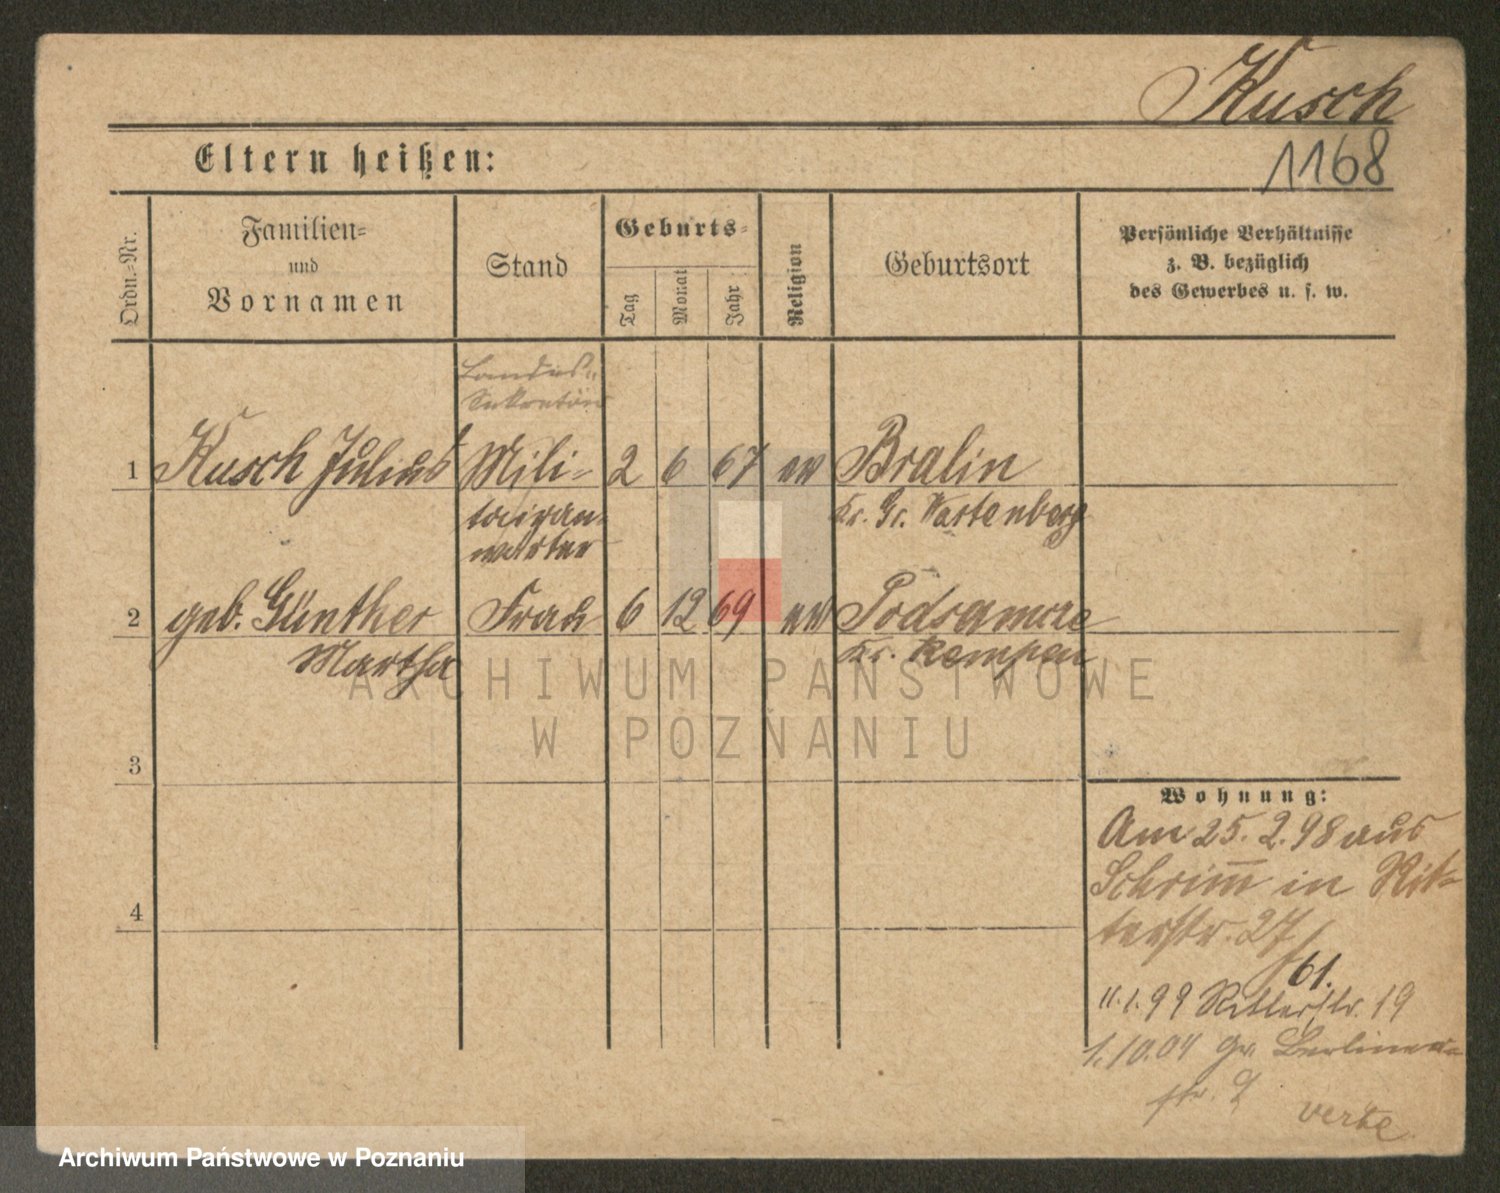 Kusch
1168
Eltern heißen:
Ordn.-Nr.
Familien-
und
Vornamen
Stand
Geburts-
Tag
Monat
Jahr
Religion
Geburtsort
Persönliche Verhältnisse
z. B. bezüglich
des Gewerbes u. s. w.
Landes-
Sekretär
1 Kusch Julius Mili- 2 6 67 ev Bralin
täranwärter
Kr. Gr. Wartenberg
2 geb. Günther Frau 6 12 69 ev Podsamcze
Martha Kr. Kempen
3
4
Wohnung:
Am 25.2.98 aus
Schrimm in Rit-
terstr. 27/
61.
11.1.99 Ritterstr. 19
1.10.04 Gr. Berliner-
str. 9
verte
ARCHIWUM PAŃSTWOWE
W POZNANIU
Archiwum Państwowe w Poznaniu